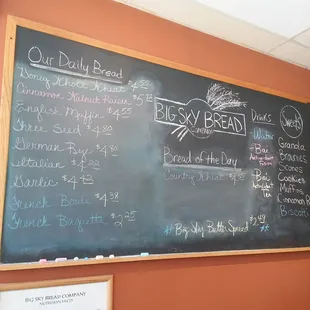 Our Daily Bread
Honey Whole Wheat $4.55
Cinnamon Walnut Raisin $5
English Muffin $4.55
Three Seed $4.80
German Rye $4.80
Italian $4
Garlic $4.43
French Boule $4.38
French Baguette $2.25
BIG SKY BREAD
COMPANY
Bread of the Day
Country Wheat
#Big Sky Butter Spread $2.49
Drinks
Water
Bai
Bai
Sweets
Granola
Brownies
Scones
Cookies
Muffins
Cinnamon
Biscotti
BIG SKY BREAD COMPANY
NUTRITION FACTS